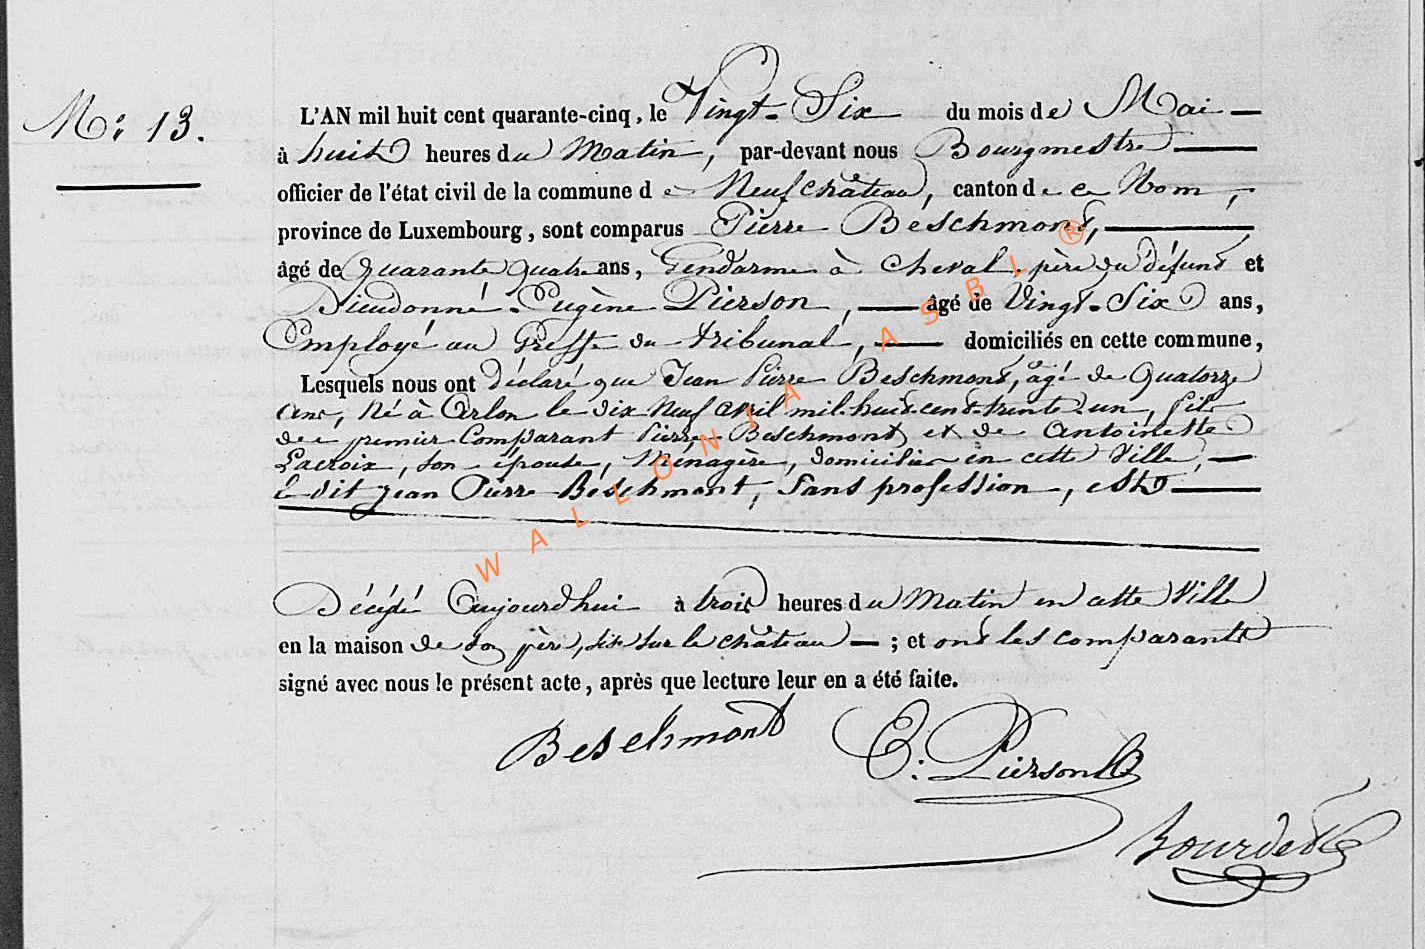 N.° 13.
L'AN mil huit cent quarante-cinq, le Vingt-Six du mois de Mai
à huit heures du Matin, par-devant nous Bourgmestre
officier de l'état civil de la commune de Neufchâteau, canton de ce Nom,
province de Luxembourg, sont comparus Pierre Beschmont,
âgé de Quarante quatre ans, Gendarme à cheval père du défunt et
Dieudonné Eugène Pierson, âgé de Vingt-Six ans,
Employé au Greffe du tribunal, domiciliés en cette commune,
Lesquels nous ont déclaré que Jean Pierre Beschmont, âgé de Quatorze
ans, Né à Arlon le dix Neuf avril mil-huit-cent-trente-un, fils
de premier Comparant Pierre Beschmont et de Antoinette
Lacroix, son épouse, Ménagère, domiciliés en cette Ville,
le dit Jean Pierre Beschmont, Sans profession, est
Décédé Aujourd'hui à trois heures du Matin en cette Ville
en la maison de son père, sise sur le château ; et ont les comparants
signé avec nous le présent acte, après que lecture leur en a été faite.
Beschmont E. Pierson
WALLONIA ASBL ®